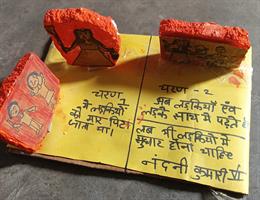 चरण 1
में लड़कियों
को मार पिटा
जाता था।
चरण - 2
अब लड़कियाँ एवं
लड़के साथ में पढ़ते है
अब भी लड़कियों में
सुधार होना चाहिए
नंदनी कुमारी VI